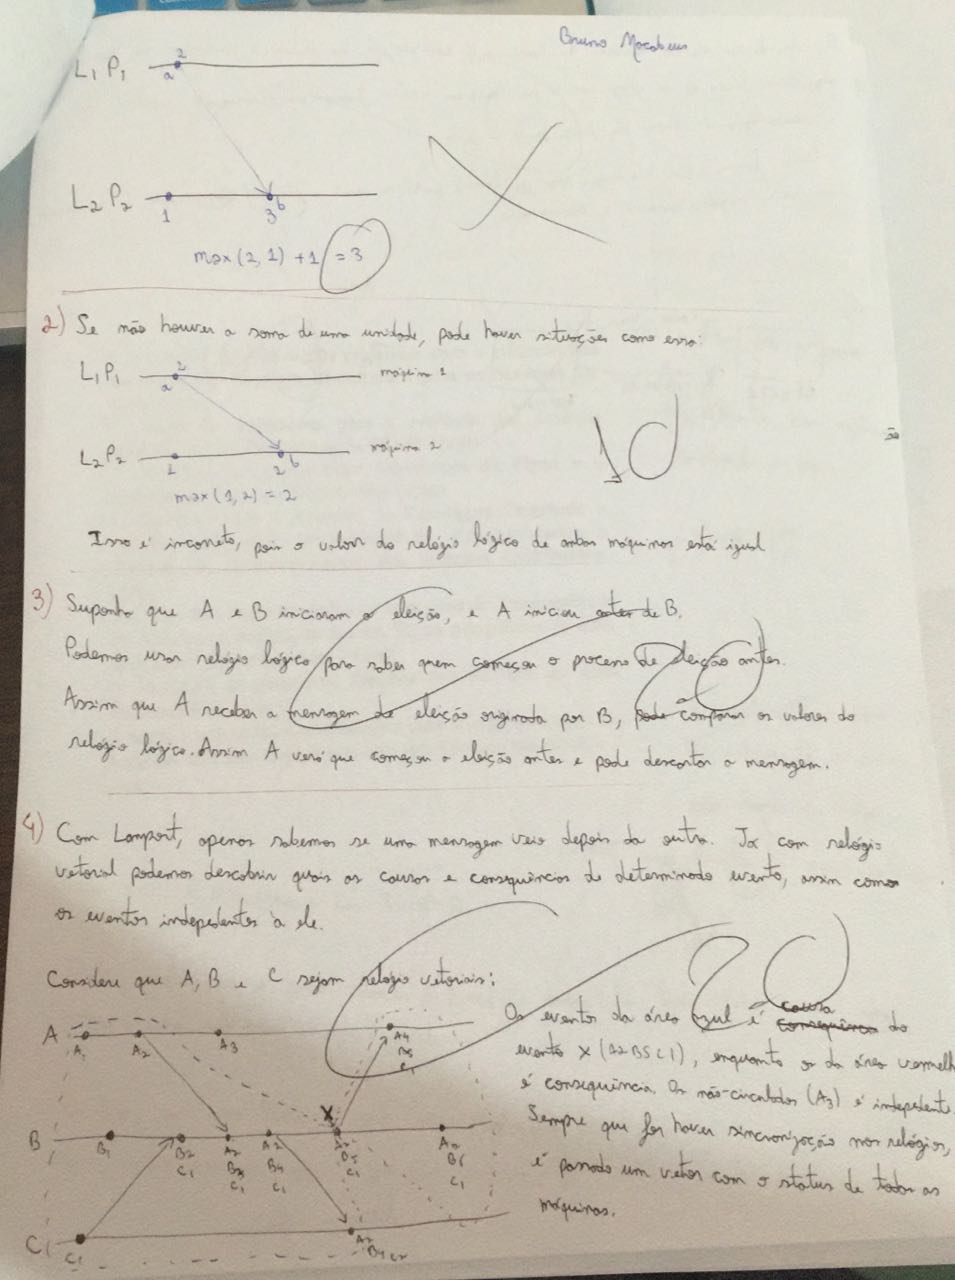 Bruno Macabeus
L₁ P₁
2
a
L₂ P₂
1
3
b
max(2, 1) + 1 = 3
2) Se não houver a soma de uma unidade, pode haver situações como essa:
L₁ P₁
2
a
máquina 1
10
L₂ P₂
1
2
b
máquina 2
max(1, 2) = 2
ão
Isso é incorreto, pois o valor do relógio lógico de ambas máquinas está igual
3) Suponha que A e B iniciaram a eleição, e A iniciou antes de B.
Podemos usar relógio lógico para saber quem começou o processo de eleição antes.
Assim que A receber a mensagem de eleição originada por B, pode comparar os valores do
relógio lógico. Assim A verá que começou a eleição antes e pode descartar a mensagem.
4) Com Lamport, apenas sabemos se uma mensagem veio depois da outra. Já com relógio
vetorial podemos descobrir quais as causas e consequências de determinado evento, assim como
os eventos indepedentes à ele.
Considere que A, B e C sejam relógio vetoriais:
A
A₁
A₂
A₃
A₄
B₅
C₁
B
B₁
B₂
C₁
A₂
B₃
C₁
A₂
B₄
C₁
X
A₂
B₅
C₁
B₆
C₁
C
C₁
A₂
B₄ C₂
Os eventos da área azul é causa do
evento X (A2 B5 C1), enquanto os da área vermelh
é consequência. Os não-circulados (A₃) é indepedente.
Sempre que for haver sincronização nos relógios,
é passado um vetor com o status de todas as
máquinas.